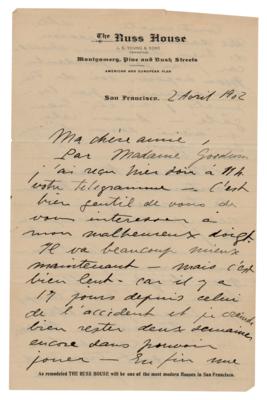 The Russ House
J. S. YOUNG & SONS
PROPRIETORS
Montgomery, Pine and Bush Streets
AMERICAN AND EUROPEAN PLAN
San Francisco, 2 Avril 1902
Ma chère amie,
Par Madame
j'ai reçu hier soir à 11 h
votre télégramme – C'est
bien gentil de vous de
vous intéresser à
mon malheureux doigt.
Il va beaucoup mieux
maintenant – mais c'est
bien lent – car il y a
17 jours depuis celui
de l'accident et je
bien rester deux semaines
encore sans pouvoir
jouer – Enfin une
As remodeled THE RUSS HOUSE will be one of the most modern Houses in San Francisco.